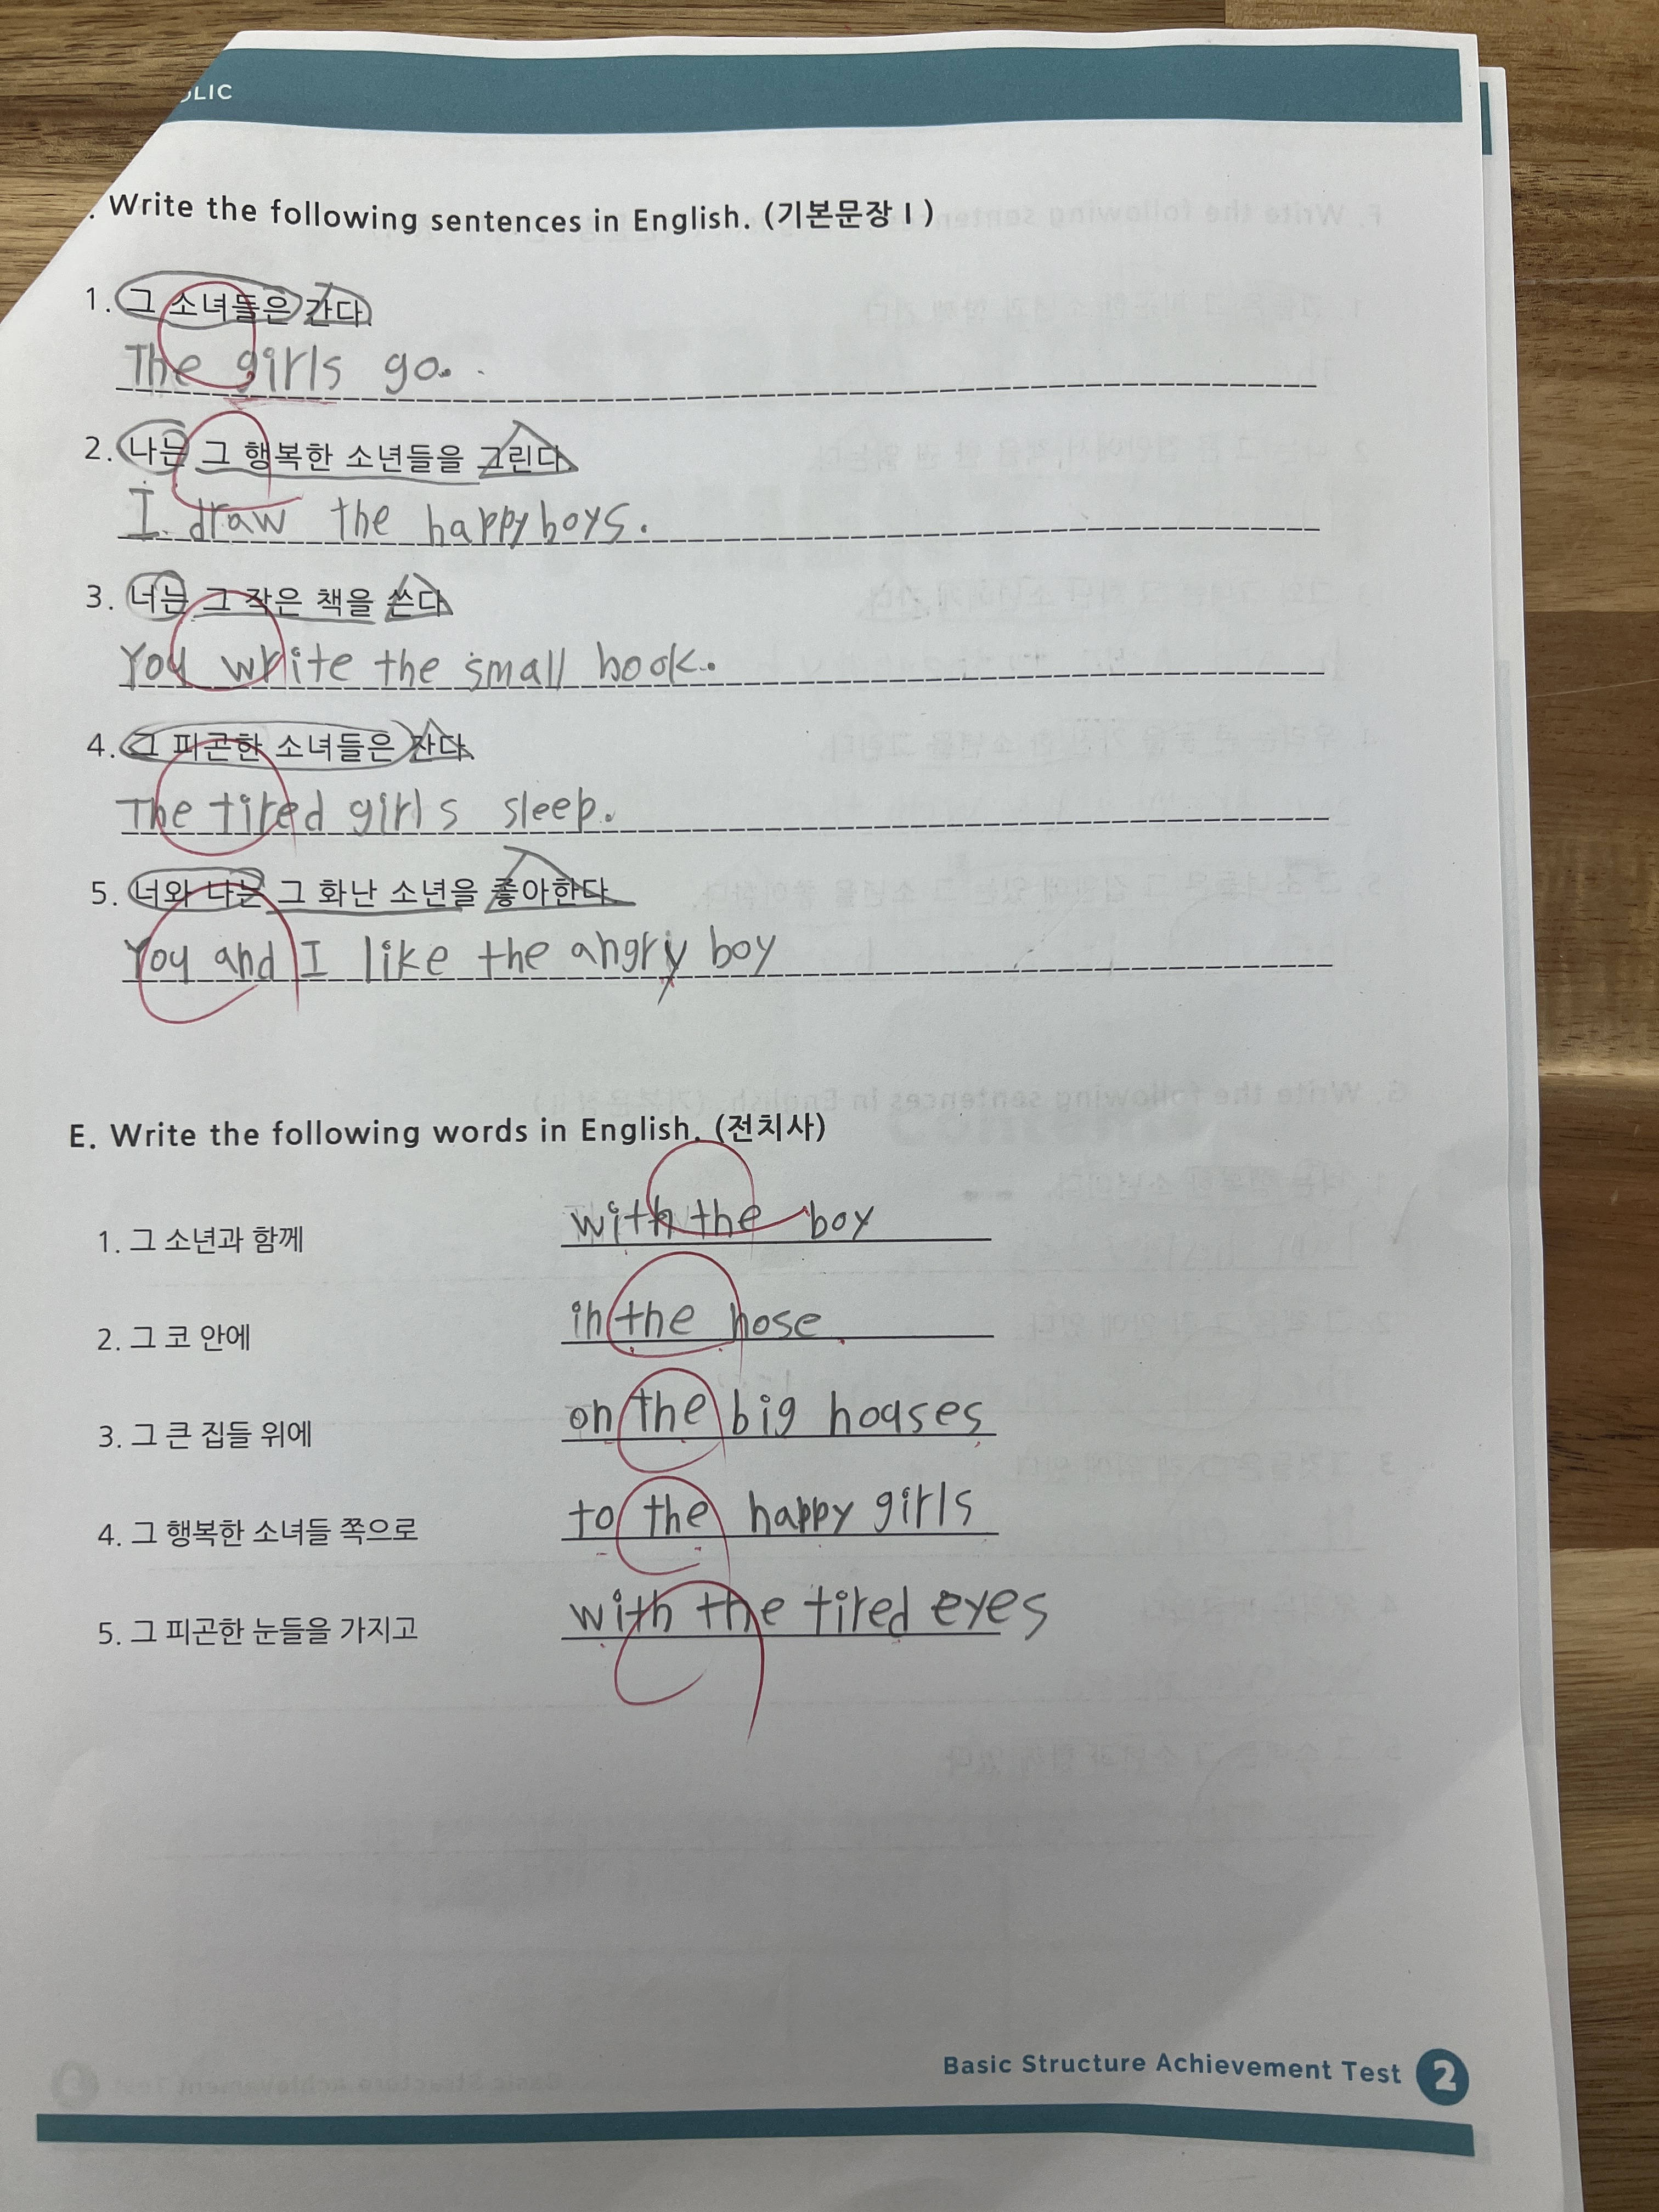 LIC
. Write the following sentences in English. (기본문장 I)
1. 그 소녀들은 간다.
The girls go.
2. 나는 그 행복한 소년들을 그린다.
I draw the happy boys.
3. 너는 그 작은 책을 쓴다.
You write the small book.
4. 그 피곤한 소녀들은 잔다.
The tired girls sleep.
5. 너와 나는 그 화난 소년을 좋아한다.
You and I like the angry boy
E. Write the following words in English. (전치사)
1. 그 소년과 함께 with the boy
2. 그 코 안에 in the nose
3. 그 큰 집들 위에 on the big houses
4. 그 행복한 소녀들 쪽으로 to the happy girls
5. 그 피곤한 눈들을 가지고 with the tired eyes
Basic Structure Achievement Test 2